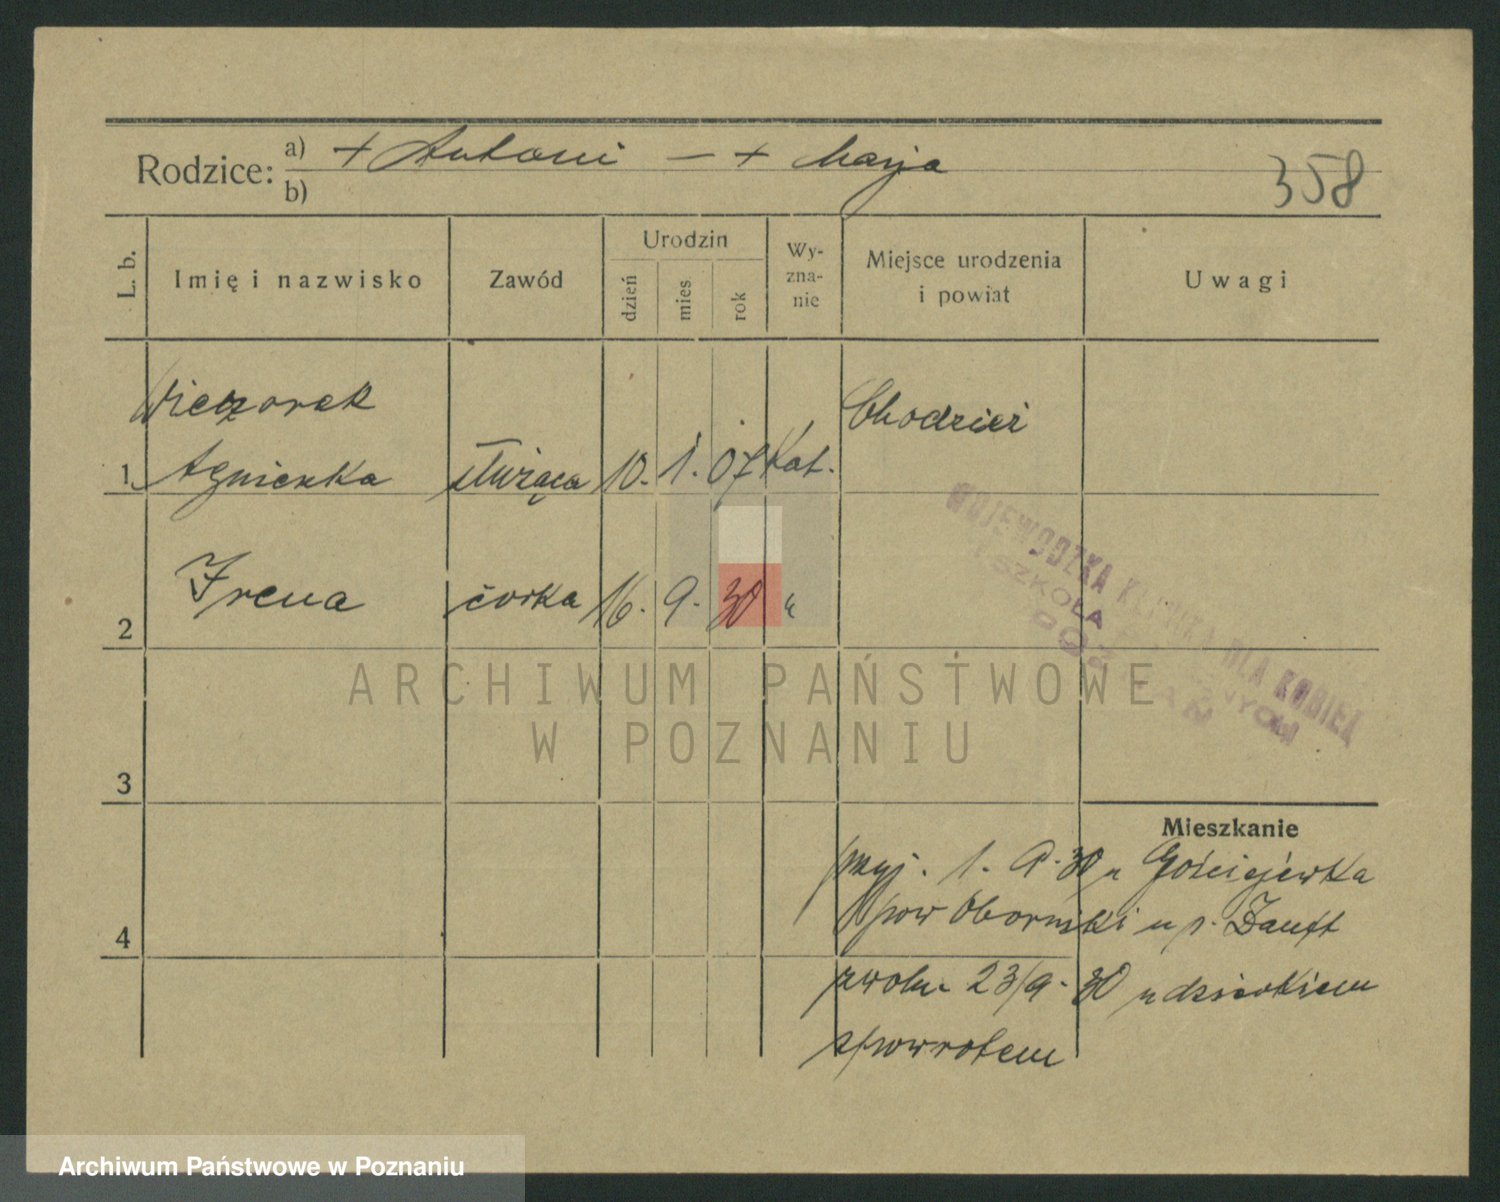 Rodzice: a) + Antoni — + Marja
b)
358
L. b.
Imię i nazwisko
Zawód
Urodzin
dzień
mies
rok
Wy-
zna-
nie
Miejsce urodzenia
i powiat
Uwagi
Wieczorek
Chodzież
1. Agnieszka służąca 10. 1. 07 Kat.
2 Irena córka 16. 9. 30 "
WOJEWÓDZKA KLINIKA DLA KOBIET
SZKOŁA POŁOŻNYCH
POZNAŃ
ARCHIWUM PAŃSTWOWE
W POZNANIU
3
Mieszkanie
przyj. 1. 9. 30 z Gościejewka
4 pow Oborniki u p.
zwoln. 23/9. 30 z dzieckiem
spowrotem
Archiwum Państwowe w Poznaniu